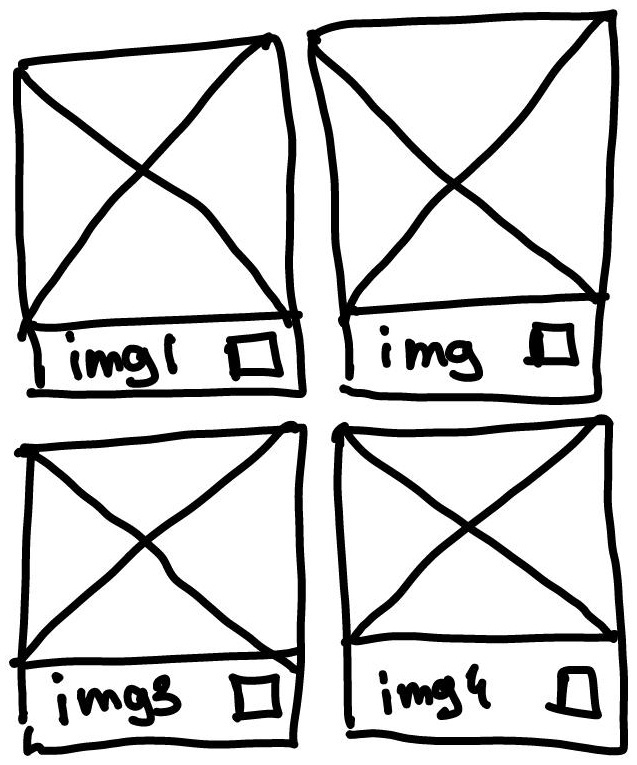 img1
img
img3
img4